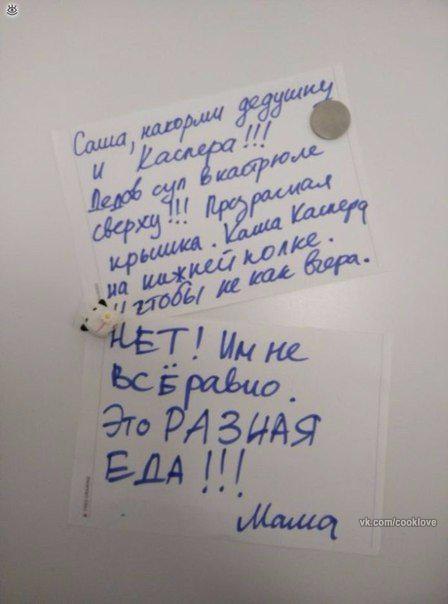 Саша, накорми дедушку
и Каспера!!!
Дедов суп в кастрюле
сверху!!! Прозрачная
крышка. Каша Каспера
на нижней полке.
И чтобы не как вчера.
НЕТ! Им не
ВСЁ равно.
Это РАЗНАЯ
ЕДА!!!
Мама
vk.com/cooklove